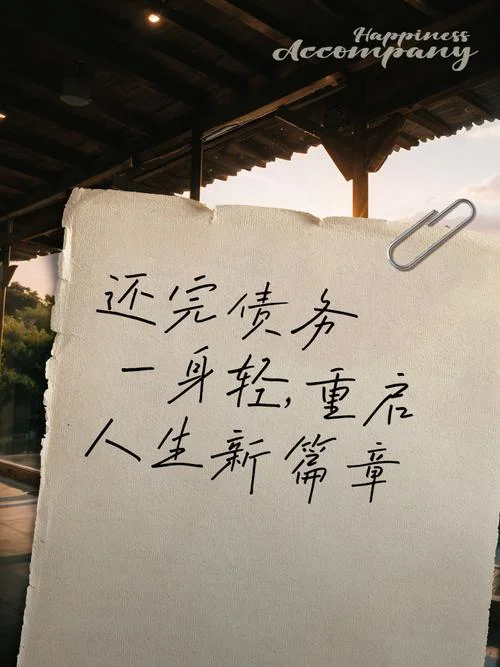 Happiness
Accompany
还完债务
一身轻,重启
人生新篇章